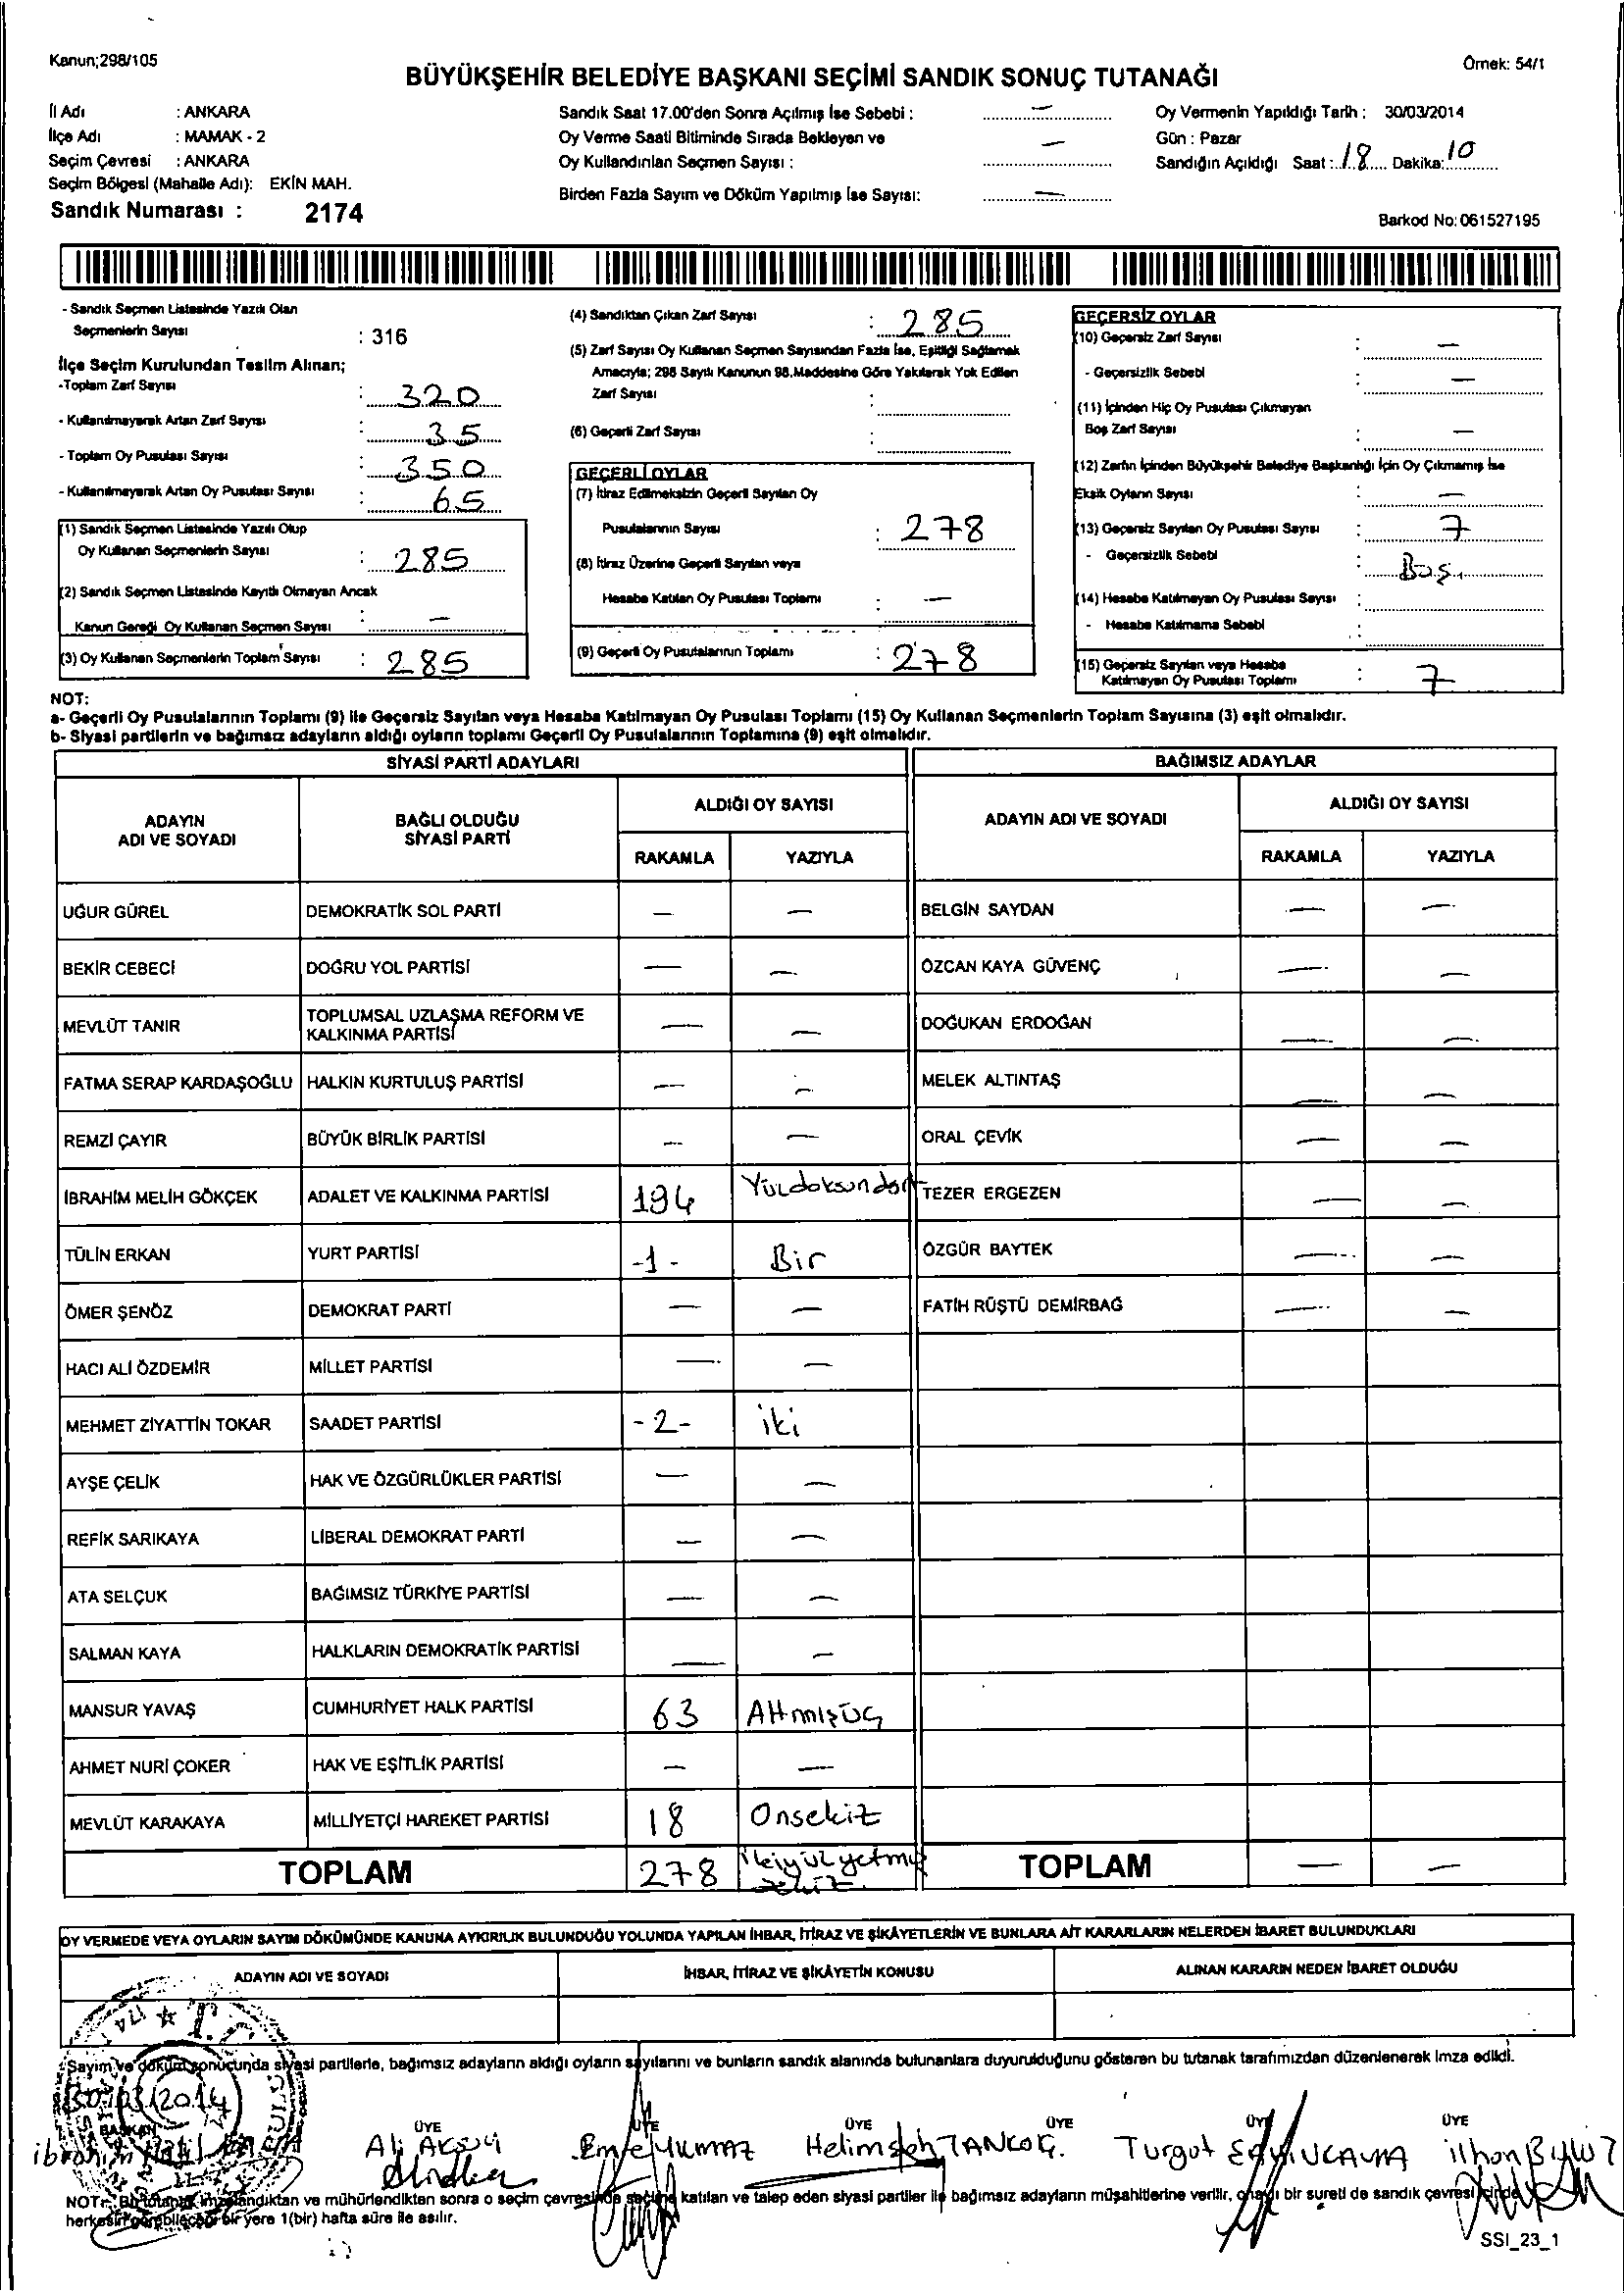 Kanun;298/105
Örnek: 54/1
BÜYÜKŞEHİR BELEDİYE BAŞKANI SEÇİMİ SANDIK SONUÇ TUTANAĞI
İl Adı : ANKARA
İlçe Adı : MAMAK - 2
Seçim Çevresi : ANKARA
Seçim Bölgesi (Mahalle Adı): EKİN MAH.
Sandık Numarası : 2174
Sandık Saat 17.00'den Sonra Açılmış İse Sebebi : —
Oy Verme Saati Bitiminde Sırada Bekleyen ve
Oy Kullandırılan Seçmen Sayısı : —
Birden Fazla Sayım ve Döküm Yapılmış İse Sayısı: —
Oy Vermenin Yapıldığı Tarih : 30/03/2014
Gün : Pazar
Sandığın Açıldığı Saat : 18 Dakika: 10
Barkod No: 061527195
- Sandık Seçmen Listesinde Yazılı Olan
Seçmenlerin Sayısı : 316
İlçe Seçim Kurulundan Teslim Alınan;
-Toplam Zarf Sayısı : 320
- Kullanılmayarak Artan Zarf Sayısı : 35
- Toplam Oy Pusulası Sayısı : 350
- Kullanılmayarak Artan Oy Pusulası Sayısı : 65
(1) Sandık Seçmen Listesinde Yazılı Olup
Oy Kullanan Seçmenlerin Sayısı : 285
(2) Sandık Seçmen Listesinde Kayıtlı Olmayan Ancak
Kanun Gereği Oy Kullanan Seçmen Sayısı : —
(3) Oy Kullanan Seçmenlerin Toplam Sayısı : 285
(4) Sandıktan Çıkan Zarf Sayısı : 285
(5) Zarf Sayısı Oy Kullanan Seçmen Sayısından Fazla İse, Eşitliği Sağlamak
Amacıyla; 298 Sayılı Kanunun 98.Maddesine Göre Yakılarak Yok Edilen
Zarf Sayısı :
(6) Geçerli Zarf Sayısı :
GEÇERLİ OYLAR
(7) İtiraz Edilmeksizin Geçerli Sayılan Oy
Pusulalarının Sayısı : 278
(8) İtiraz Üzerine Geçerli Sayılan veya
Hesaba Katılan Oy Pusulası Toplamı : —
(9) Geçerli Oy Pusulalarının Toplamı : 278
GEÇERSİZ OYLAR
(10) Geçersiz Zarf Sayısı : —
- Geçersizlik Sebebi : —
(11) İçinden Hiç Oy Pusulası Çıkmayan
Boş Zarf Sayısı : —
(12) Zarfın İçinden Büyükşehir Belediye Başkanlığı İçin Oy Çıkmamış İse
Eksik Oyların Sayısı : —
(13) Geçersiz Sayılan Oy Pusulası Sayısı : 7
- Geçersizlik Sebebi : Boş
(14) Hesaba Katılmayan Oy Pusulası Sayısı :
- Hesaba Katılmama Sebebi :
(15) Geçersiz Sayılan veya Hesaba
Katılmayan Oy Pusulası Toplamı : 7
NOT:
a- Geçerli Oy Pusulalarının Toplamı (9) ile Geçersiz Sayılan veya Hesaba Katılmayan Oy Pusulası Toplamı (15) Oy Kullanan Seçmenlerin Toplam Sayısına (3) eşit olmalıdır.
b- Siyasi partilerin ve bağımsız adayların aldığı oyların toplamı Geçerli Oy Pusulalarının Toplamına (9) eşit olmalıdır.
SİYASİ PARTİ ADAYLARI BAĞIMSIZ ADAYLAR
ADAYIN
ADI VE SOYADI
BAĞLI OLDUĞU
SİYASİ PARTİ
ALDIĞI OY SAYISI
RAKAMLA YAZIYLA
ADAYIN ADI VE SOYADI
ALDIĞI OY SAYISI
RAKAMLA YAZIYLA
UĞUR GÜREL DEMOKRATİK SOL PARTİ — — BELGİN SAYDAN — —
BEKİR CEBECİ DOĞRU YOL PARTİSİ — — ÖZCAN KAYA GÜVENÇ — —
MEVLÜT TANIR TOPLUMSAL UZLAŞMA REFORM VE
KALKINMA PARTİSİ — — DOĞUKAN ERDOĞAN — —
FATMA SERAP KARDAŞOĞLU HALKIN KURTULUŞ PARTİSİ — — MELEK ALTINTAŞ — —
REMZİ ÇAYIR BÜYÜK BİRLİK PARTİSİ — — ORAL ÇEVİK — —
İBRAHİM MELİH GÖKÇEK ADALET VE KALKINMA PARTİSİ 194 Yüzdoksandört TEZER ERGEZEN — —
TÜLİN ERKAN YURT PARTİSİ -1- Bir ÖZGÜR BAYTEK — —
ÖMER ŞENÖZ DEMOKRAT PARTİ — — FATİH RÜŞTÜ DEMİRBAĞ — —
HACI ALİ ÖZDEMİR MİLLET PARTİSİ — —
MEHMET ZİYATTİN TOKAR SAADET PARTİSİ -2- iki
AYŞE ÇELİK HAK VE ÖZGÜRLÜKLER PARTİSİ — —
REFİK SARIKAYA LİBERAL DEMOKRAT PARTİ — —
ATA SELÇUK BAĞIMSIZ TÜRKİYE PARTİSİ — —
SALMAN KAYA HALKLARIN DEMOKRATİK PARTİSİ — —
MANSUR YAVAŞ CUMHURİYET HALK PARTİSİ 63 Altmışüç
AHMET NURİ ÇOKER HAK VE EŞİTLİK PARTİSİ — —
MEVLÜT KARAKAYA MİLLİYETÇİ HAREKET PARTİSİ 18 Onsekiz
TOPLAM 278 ikiyüzyetmiş
sekiz TOPLAM — —
OY VERMEDE VEYA OYLARIN SAYIM DÖKÜMÜNDE KANUNA AYKIRILIK BULUNDUĞU YOLUNDA YAPILAN İHBAR, İTİRAZ VE ŞİKÂYETLERİN VE BUNLARA AİT KARARLARIN NELERDEN İBARET BULUNDUKLARI
ADAYIN ADI VE SOYADI İHBAR, İTİRAZ VE ŞİKÂYETİN KONUSU ALINAN KARARIN NEDEN İBARET OLDUĞU
Sayım ve döküm sonucunda siyasi partilerle, bağımsız adayların aldığı oyların sayılarını ve bunların sandık alanında bulunanlara duyurulduğunu gösteren bu tutanak tarafımızdan düzenlenerek imza edildi.
30/03/2014
BAŞKAN ÜYE ÜYE ÜYE ÜYE ÜYE ÜYE
ibrahim Halil Ali AKSOY Emre YILMAZ Helimşah TANKOÇ. Turgut ilhan
NOT: Bu tutanak imzalandıktan ve mühürlendikten sonra o seçim çevresinde seçime katılan ve talep eden siyasi partiler ile bağımsız adayların müşahitlerine verilir, onaylı bir sureti de sandık çevresi içinde
herkesin görebileceği bir yere 1(bir) hafta süre ile asılır.
SSI_23_1